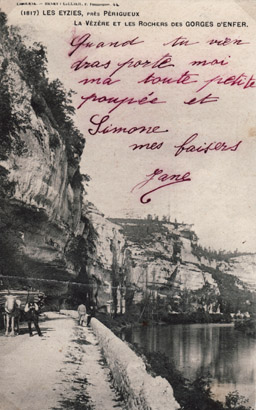 (1817) LES EYZIES, PRÈS PÉRIGUEUX
LA VÉZÈRE ET LES ROCHERS DES GORGES D'ENFER.
Quand tu vien
dras porte moi
ma toute petite
poupée et
Simone
mes baisers
Jane